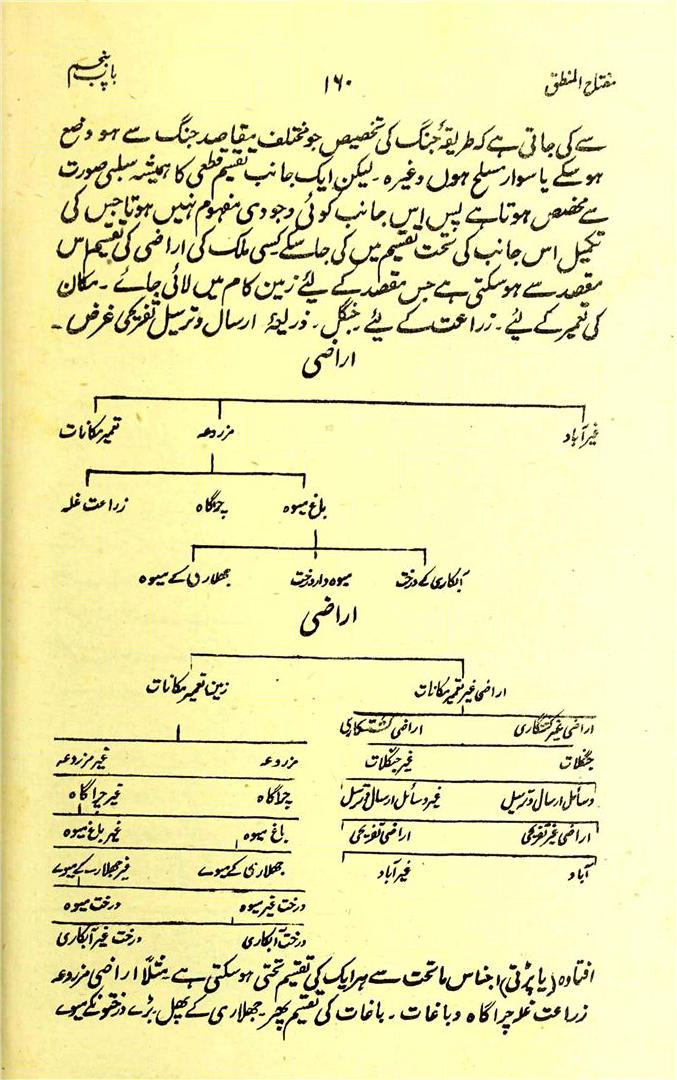 مفتاح المنطق ۱۶۰ باب پنجم
سے کی جاتی ہے کہ طریقۂ جنگ کی تخصیص جو مختلف مقاصد جنگ سے ہو وضع
ہو سکے یا سوار مسلح ہوں وغیرہ ۔ لیکن ایک جانب تقسیم قطعی کا ہمیشہ سلبی صورت
سے مخصص ہوتا ہے پس اس جانب کوئی وجودی مفہوم نہیں ہوتا جس کی
تکمیل اس جانب کی تحت تقسیم میں کی جا سکے کسی ملک کی اراضی کی تقسیم اس
مقصد سے ہو سکتی ہے جس مقصد کے لئے زمین کام میں لائی جائے ۔ مکان
کی تعمیر کے لئے ۔ زراعت کے لئے جنگل ۔ ذریعۂ ارسال و ترسیل تفریحی غرض ۔
اراضی
غیر آباد مزروعہ تعمیر مکانات
باغ میوہ چراگاہ زراعت غلہ
آبکاری کے درخت میوہ دار درخت جھلاری کے میوہ
اراضی
اراضی غیر تعمیر مکانات زمین تعمیر مکانات
اراضی غیر کشتکاری اراضی کشتکاری
جنگلات غیر جنگلات مزروعہ غیر مزروعہ
وسائل ارسال و ترسیل غیر وسائل ارسال و ترسیل چراگاہ غیر چراگاہ
اراضی غیر تفریحی اراضی تفریحی باغ میوہ غیر باغ میوہ
آباد غیر آباد جھلاری کے میوے غیر جھلاری کے میوے
درخت غیر میوہ درخت میوہ
درخت آبکاری درخت غیر آبکاری
افتادہ (یا پڑتی) اجناس ماتحت سے ہر ایک کی تقسیم تحتی ہو سکتی ہے ۔ مثلاً اراضی مزروعہ
زراعت غلہ چراگاہ و باغات ۔ باغات کی تقسیم پھر ۔ جھلاری کے پھل بڑے درختونکے میوے